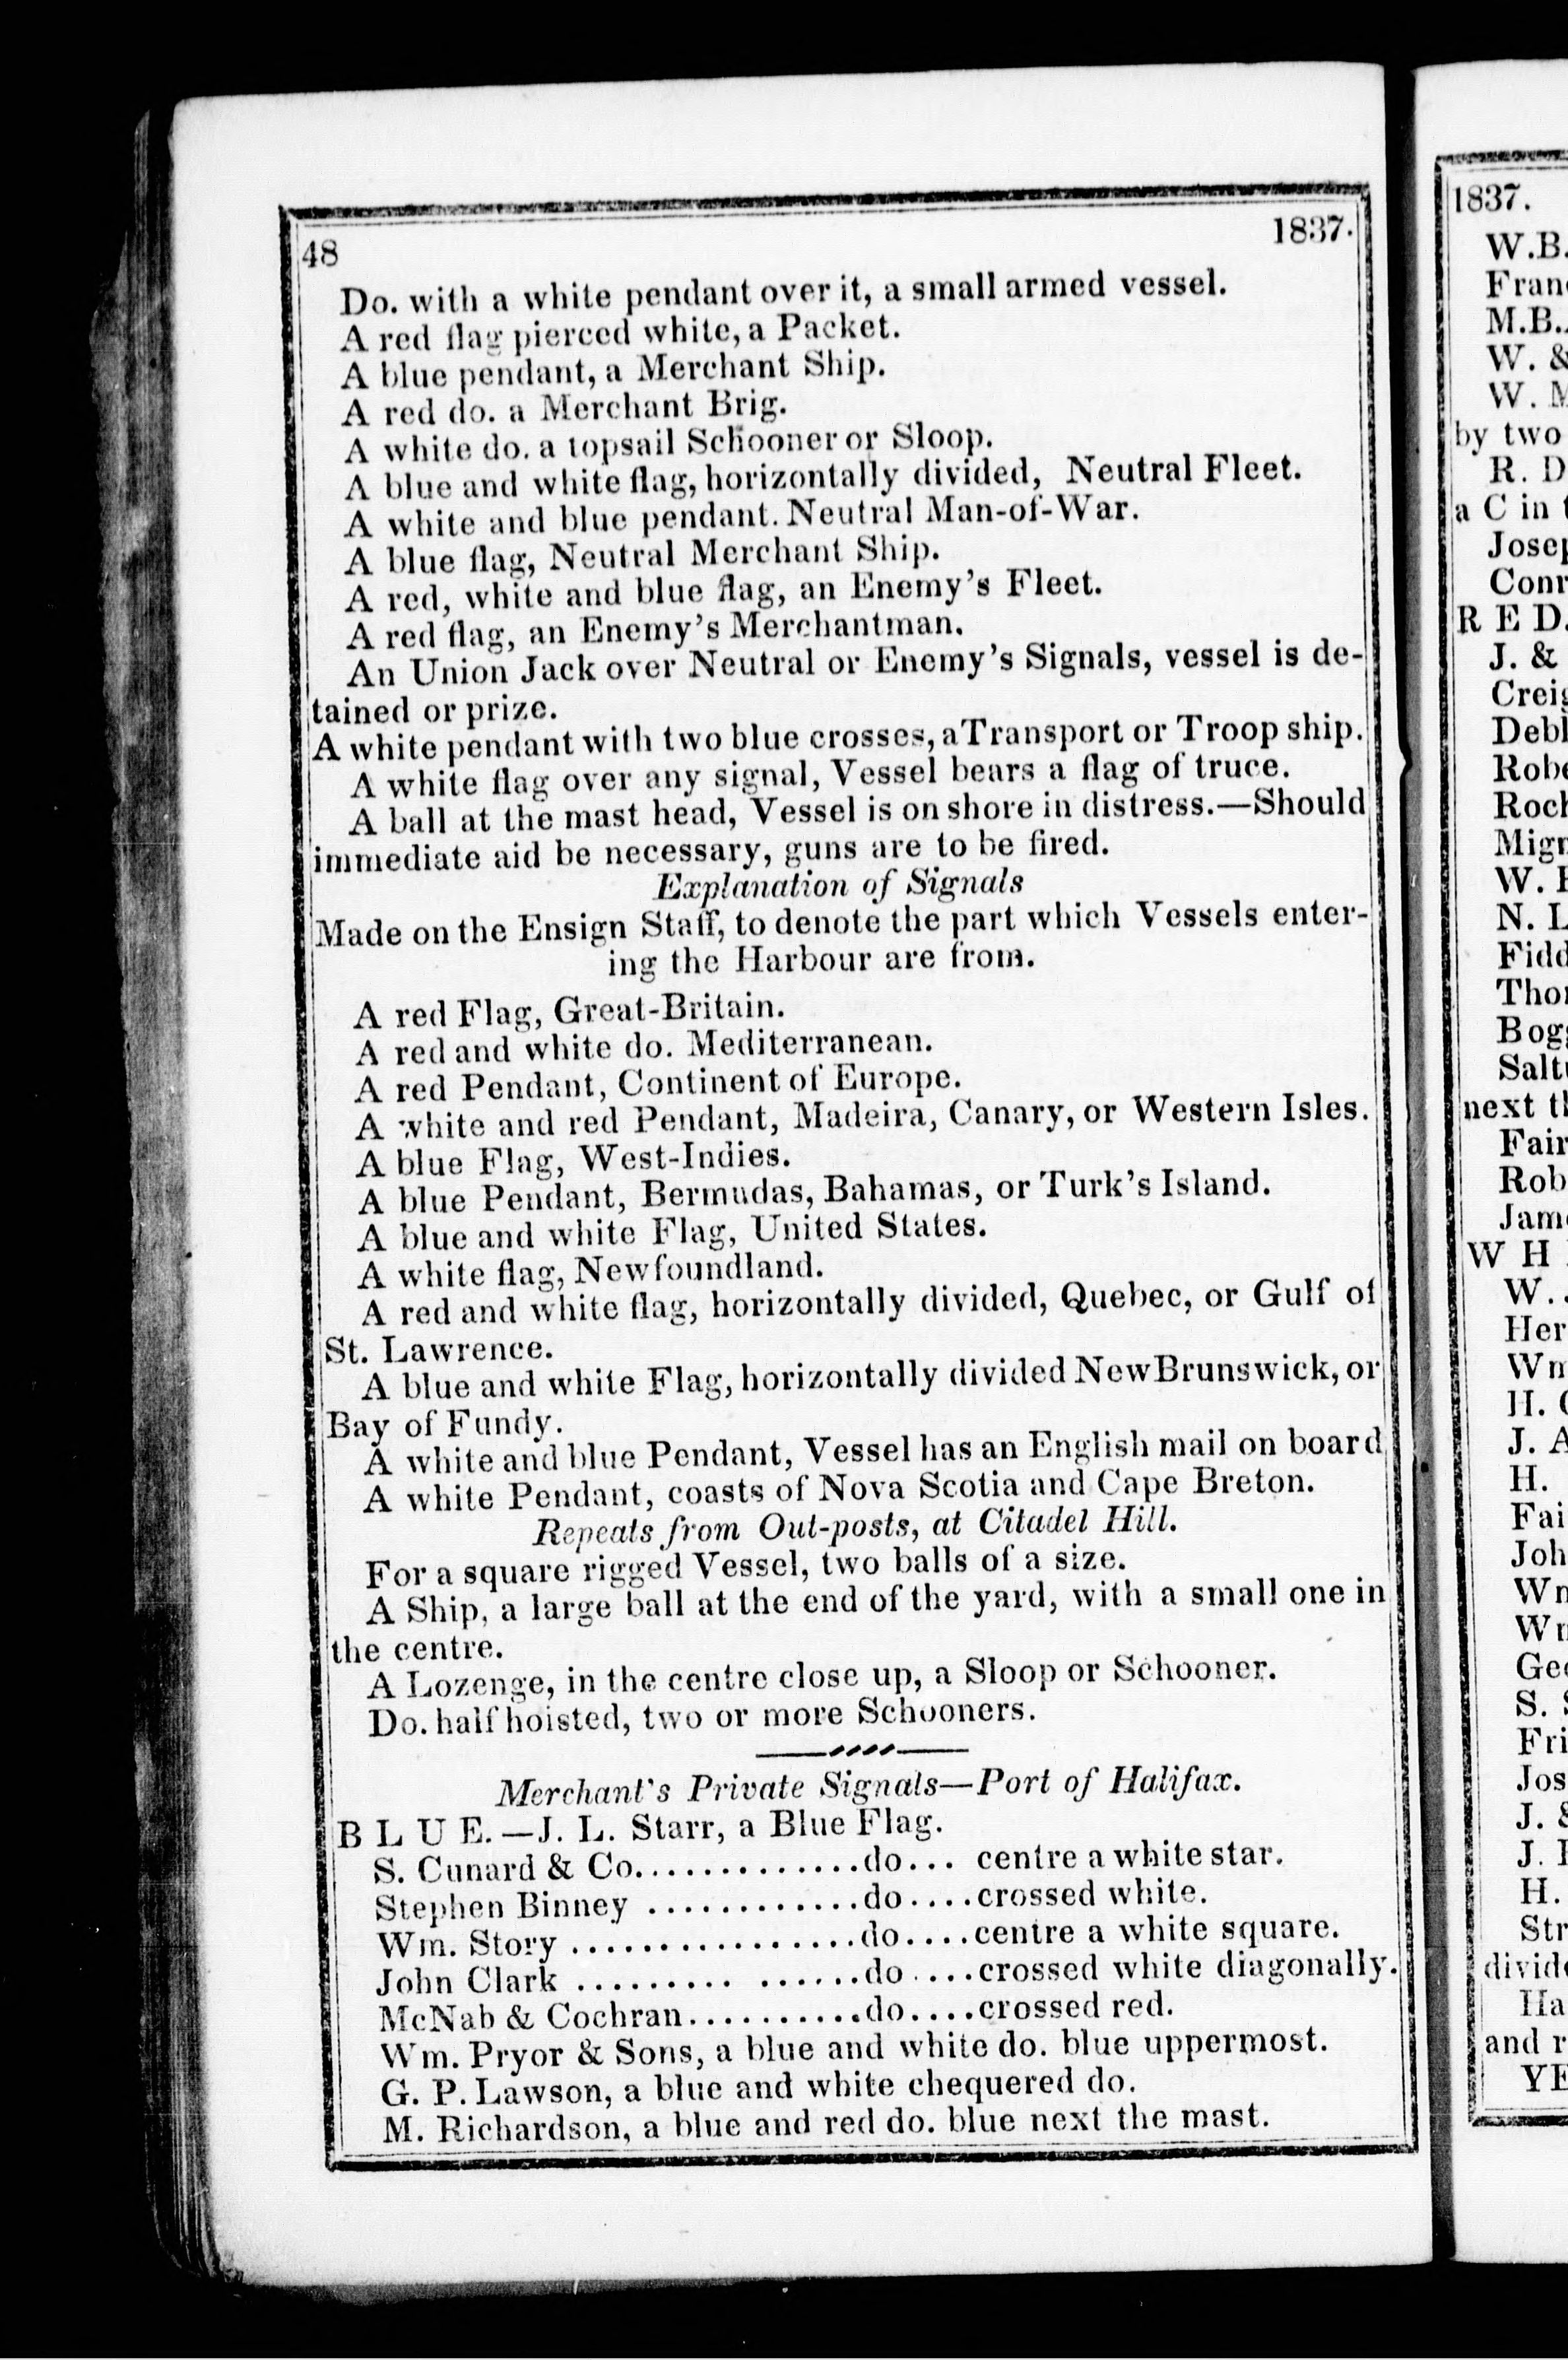 48 1837.
Do. with a white pendant over it, a small armed vessel.
A red flag pierced white, a Packet.
A blue pendant, a Merchant Ship.
A red do. a Merchant Brig.
A white do. a topsail Schooner or Sloop.
A blue and white flag, horizontally divided, Neutral Fleet.
A white and blue pendant. Neutral Man-of-War.
A blue flag, Neutral Merchant Ship.
A red, white and blue flag, an Enemy's Fleet.
A red flag, an Enemy's Merchantman.
An Union Jack over Neutral or Enemy's Signals, vessel is de-
tained or prize.
A white pendant with two blue crosses, a Transport or Troop ship.
A white flag over any signal, Vessel bears a flag of truce.
A ball at the mast head, Vessel is on shore in distress.—Should
immediate aid be necessary, guns are to be fired.
Explanation of Signals
Made on the Ensign Staff, to denote the part which Vessels enter-
ing the Harbour are from.
A red Flag, Great-Britain.
A red and white do. Mediterranean.
A red Pendant, Continent of Europe.
A white and red Pendant, Madeira, Canary, or Western Isles.
A blue Flag, West-Indies.
A blue Pendant, Bermudas, Bahamas, or Turk's Island.
A blue and white Flag, United States.
A white flag, Newfoundland.
A red and white flag, horizontally divided, Quebec, or Gulf of
St. Lawrence.
A blue and white Flag, horizontally divided New Brunswick, or
Bay of Fundy.
A white and blue Pendant, Vessel has an English mail on board
A white Pendant, coasts of Nova Scotia and Cape Breton.
Repeats from Out-posts, at Citadel Hill.
For a square rigged Vessel, two balls of a size.
A Ship, a large ball at the end of the yard, with a small one in
the centre.
A Lozenge, in the centre close up, a Sloop or Schooner.
Do. half hoisted, two or more Schooners.
Merchant's Private Signals—Port of Halifax.
B L U E.—J. L. Starr, a Blue Flag.
S. Cunard & Co..............do... centre a white star.
Stephen Binney .............do....crossed white.
Wm. Story .................do....centre a white square.
John Clark ......... ......do....crossed white diagonally.
McNab & Cochran...........do....crossed red.
Wm. Pryor & Sons, a blue and white do. blue uppermost.
G. P. Lawson, a blue and white chequered do.
M. Richardson, a blue and red do. blue next the mast.
1837.
W.B.
M.B.
W. &
W.
by two
R. D
a C in
R E D.
J. &
W.
N. L
next
W H
W.
H.
J. A
H.
S.
J. &
J.
H.
and r